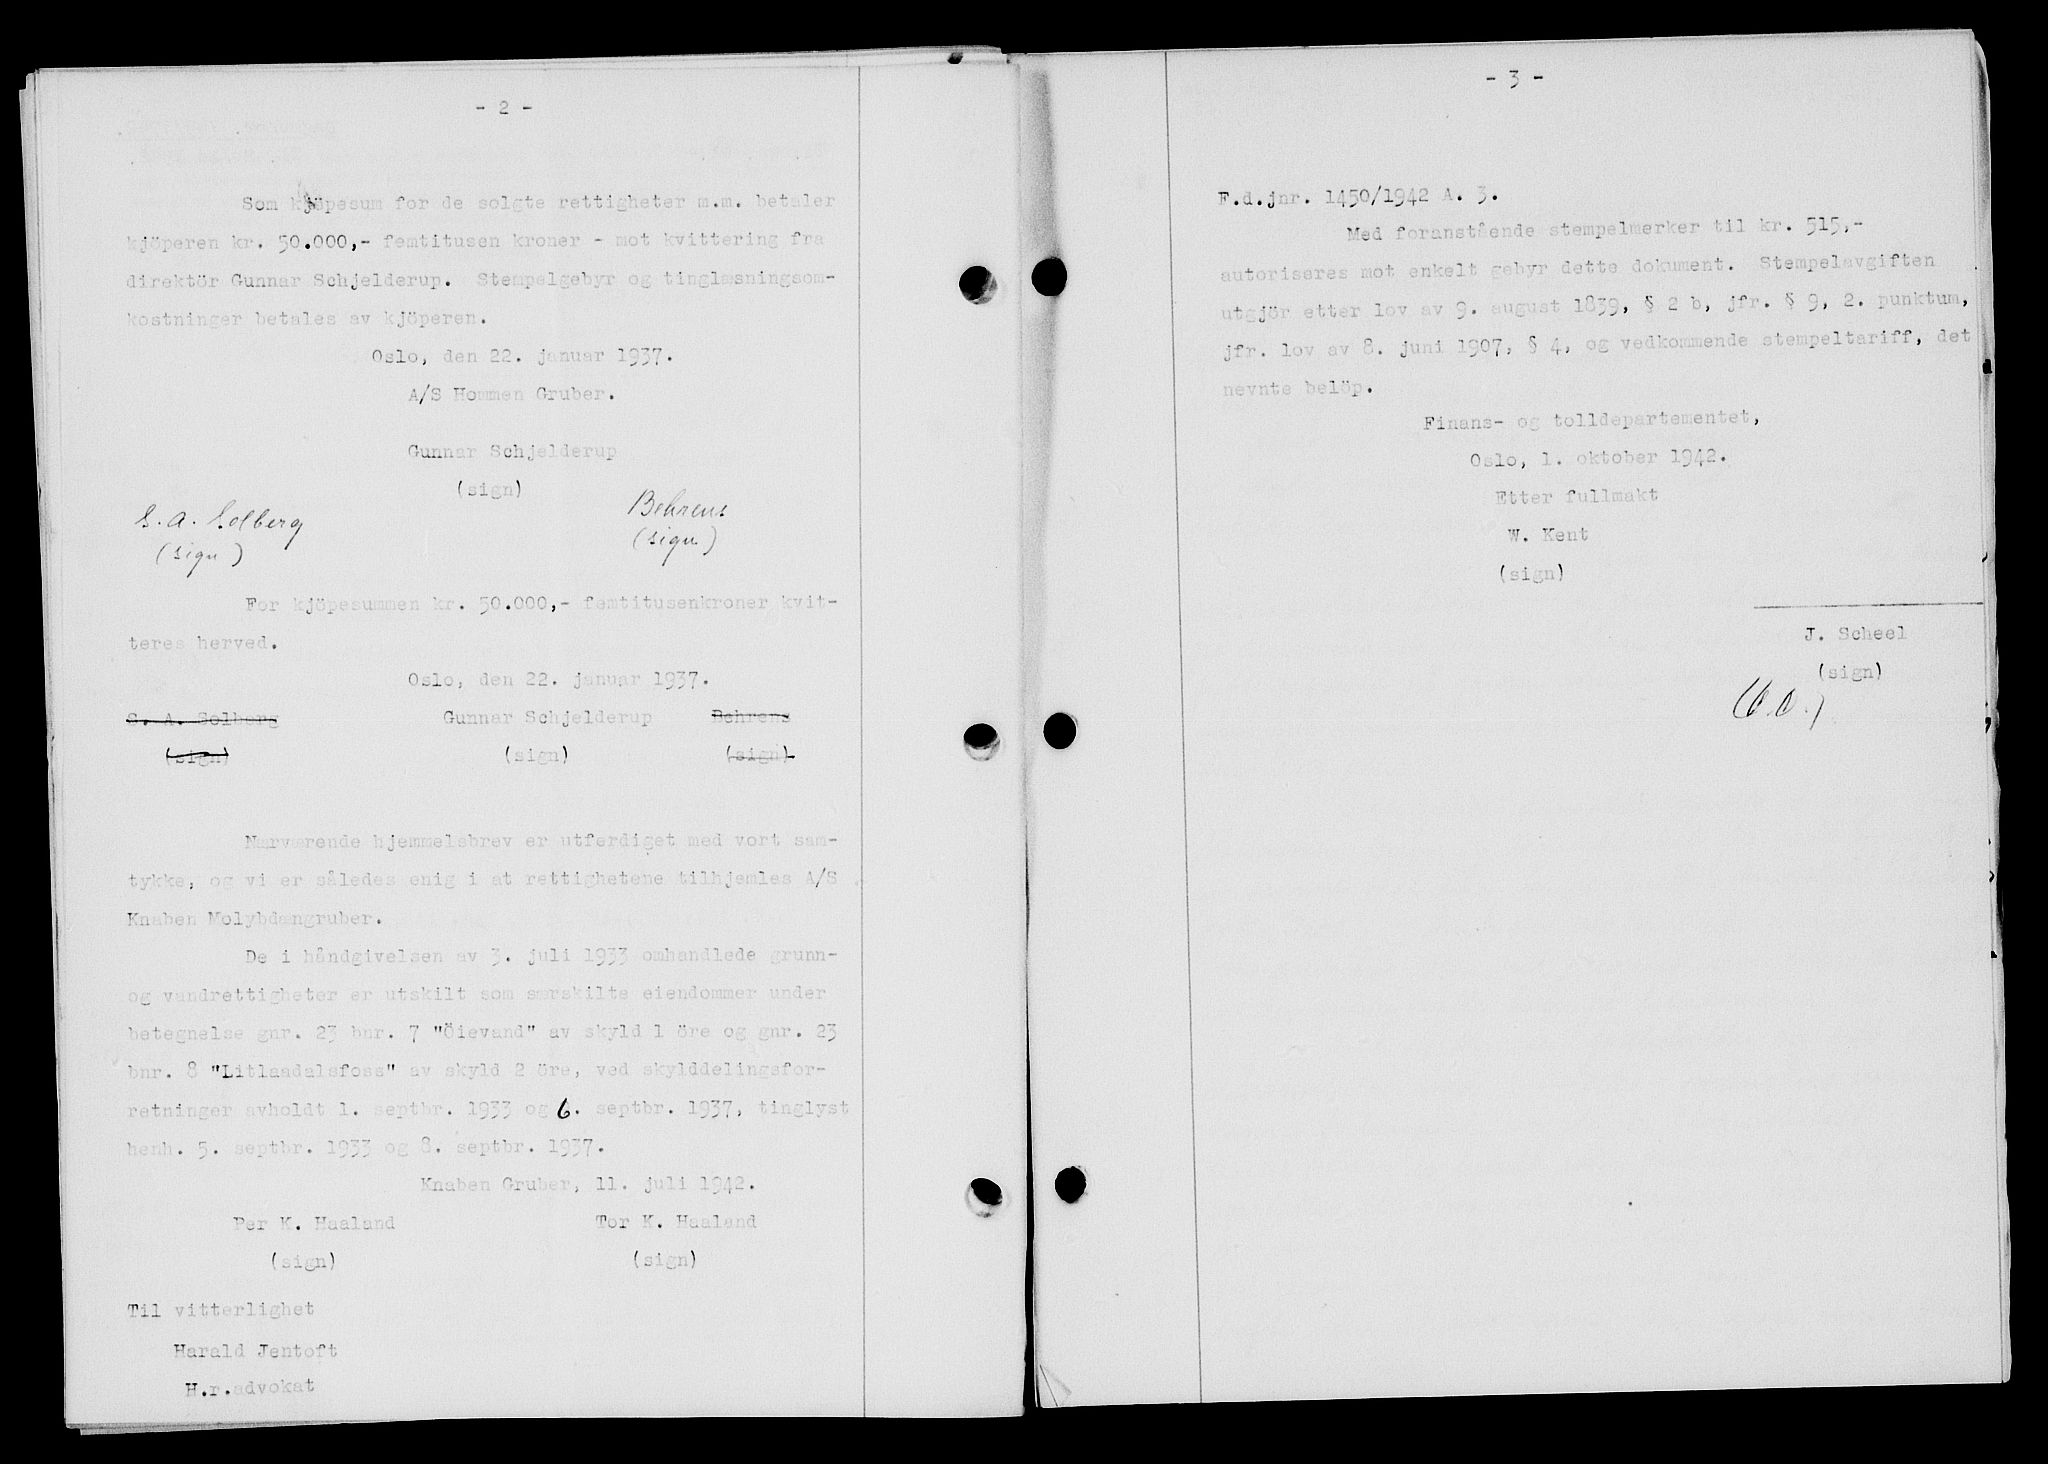 - 2 -
Som kjöpesum for de solgte rettigheter m.m. betaler
kjöperen kr. 50.000,- femtitusen kroner - mot kvittering fra
direktör Gunnar Schjelderup. Stempelgebyr og tinglæsningsom-
kostninger betales av kjöperen.
Oslo, den 22. januar 1937.
A/S Hommen Gruber.
Gunnar Schjelderup
(sign)
S. A. Solberg
(sign)
Behrens
(sign)
For kjöpesummen kr. 50.000,- femtitusenkroner kvit-
teres herved.
Oslo, den 22. januar 1937.
S. A. Solberg Gunnar Schjelderup Behrens
(sign) (sign) (sign)
Nærværende hjemmelsbrev er utferdiget med vort sam-
tykke, og vi er således enig i at rettighetene tilhjemles A/S
Knaben Molybdængruber.
De i håndgivelsen av 3. juli 1933 omhandlede grunn-
og vandrettigheter er utskilt som særskilte eiendommer under
betegnelse gnr. 23 bnr. 7 "Öievand" av skyld 1 öre og gnr. 23
bnr. 8 "Litlaadalsfoss" av skyld 2 öre, ved skylddelingsfor-
retninger avholdt 1. septbr. 1933 og 6. septbr. 1937, tinglyst
henh. 5. septbr. 1933 og 8. septbr. 1937.
Knaben Gruber, 11. juli 1942.
Per K. Haaland Tor K. Haaland
(sign) (sign)
Til vitterlighet
Harald Jentoft
H.r.advokat
- 3 -
F.d.jnr. 1450/1942 A. 3.
Med foranstående stempelmerker til kr. 515,-
autoriseres mot enkelt gebyr dette dokument. Stempelavgiften
utgjör etter lov av 9. august 1839, § 2 b, jfr. § 9, 2. punktum,
jfr. lov av 8. juni 1907, § 4, og vedkommende stempeltariff, det
nevnte belöp.
Finans- og tolldepartementet,
Oslo, 1. oktober 1942.
Etter fullmakt
W. Kent
(sign)
J. Scheel
(sign)